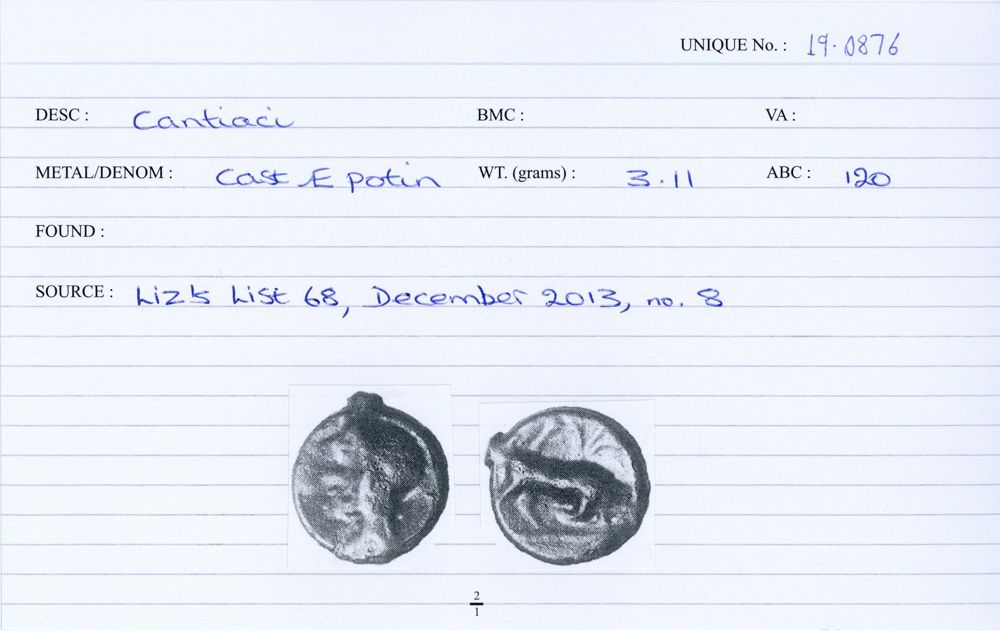 UNIQUE No. : 19.0876
DESC : Cantiaci BMC : VA :
METAL/DENOM : Cast Æ potin WT. (grams) : 3.11 ABC : 120
FOUND :
SOURCE : Liz's List 68, December 2013, no. 8
2
1